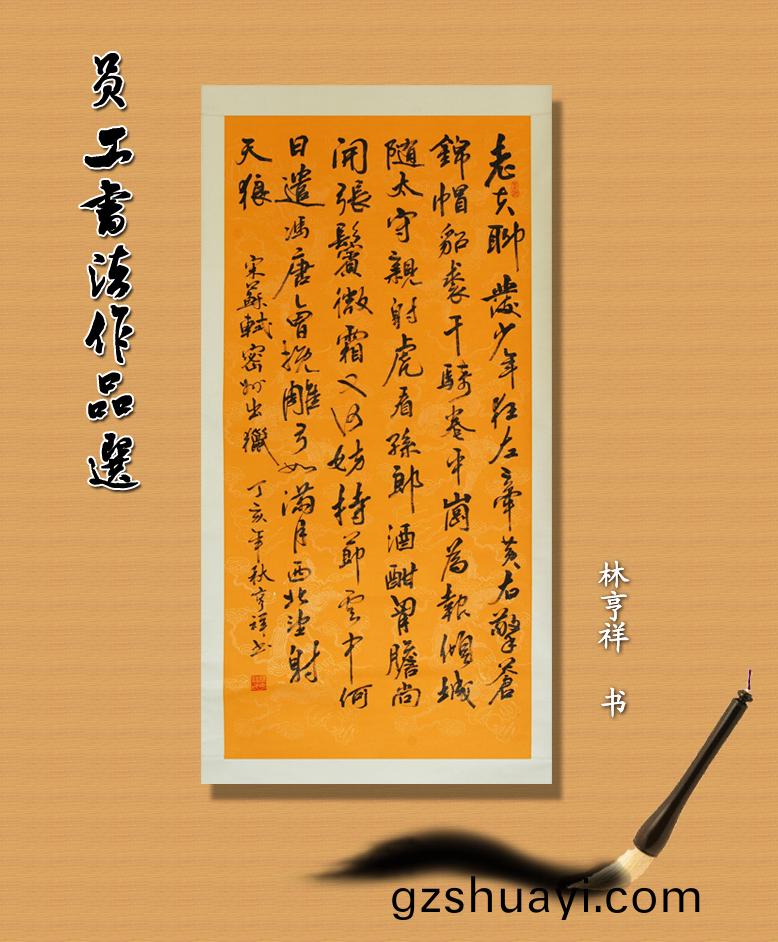 员工書法作品選
老夫聊發少年狂左牽黄右擎蒼
錦帽貂裘千騎卷平崗為報傾城
随太守親射虎看孫郎酒酣胷膽尚
開張鬢微霜又何妨持節雲中何
日遣馮唐會挽雕弓如滿月西北望射
天狼 宋蘇軾密州出獵 丁亥年秋亨祥书
林亨祥 书
gzshuayi.com